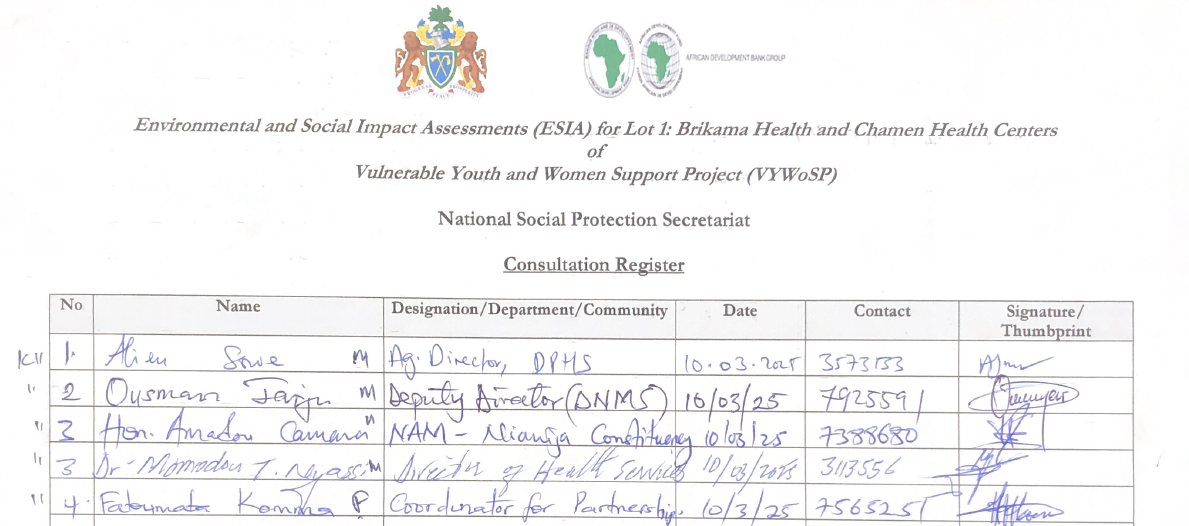 PROGRESS PEACE PROSPERITY
AFRICAN DEVELOPMENT BANK GROUP
Environmental and Social Impact Assessments (ESIA) for Lot 1: Brikama Health and Chamen Health Centers
of
Vulnerable Youth and Women Support Project (VYWoSP)
National Social Protection Secretariat
Consultation Register
No Name Designation/Department/Community Date Contact Signature/ Thumbprint
KII 1. Alieu Sowe M Ag. Director, DPHS 10.03.2025 3573133
" 2 Ousman M Deputy Director (DNMS) 10/03/25 7925591
" 3 Hon. Amadou Camara M NAM - Nianija Constituency 10/03/25 7388680
" 3 Dr. Momodou T. Nyassi M Director of Health Services 10/03/2025 3113556
" 4. Fatoumata Komma F Coordinator for Partnership. 10/3/25 7565251